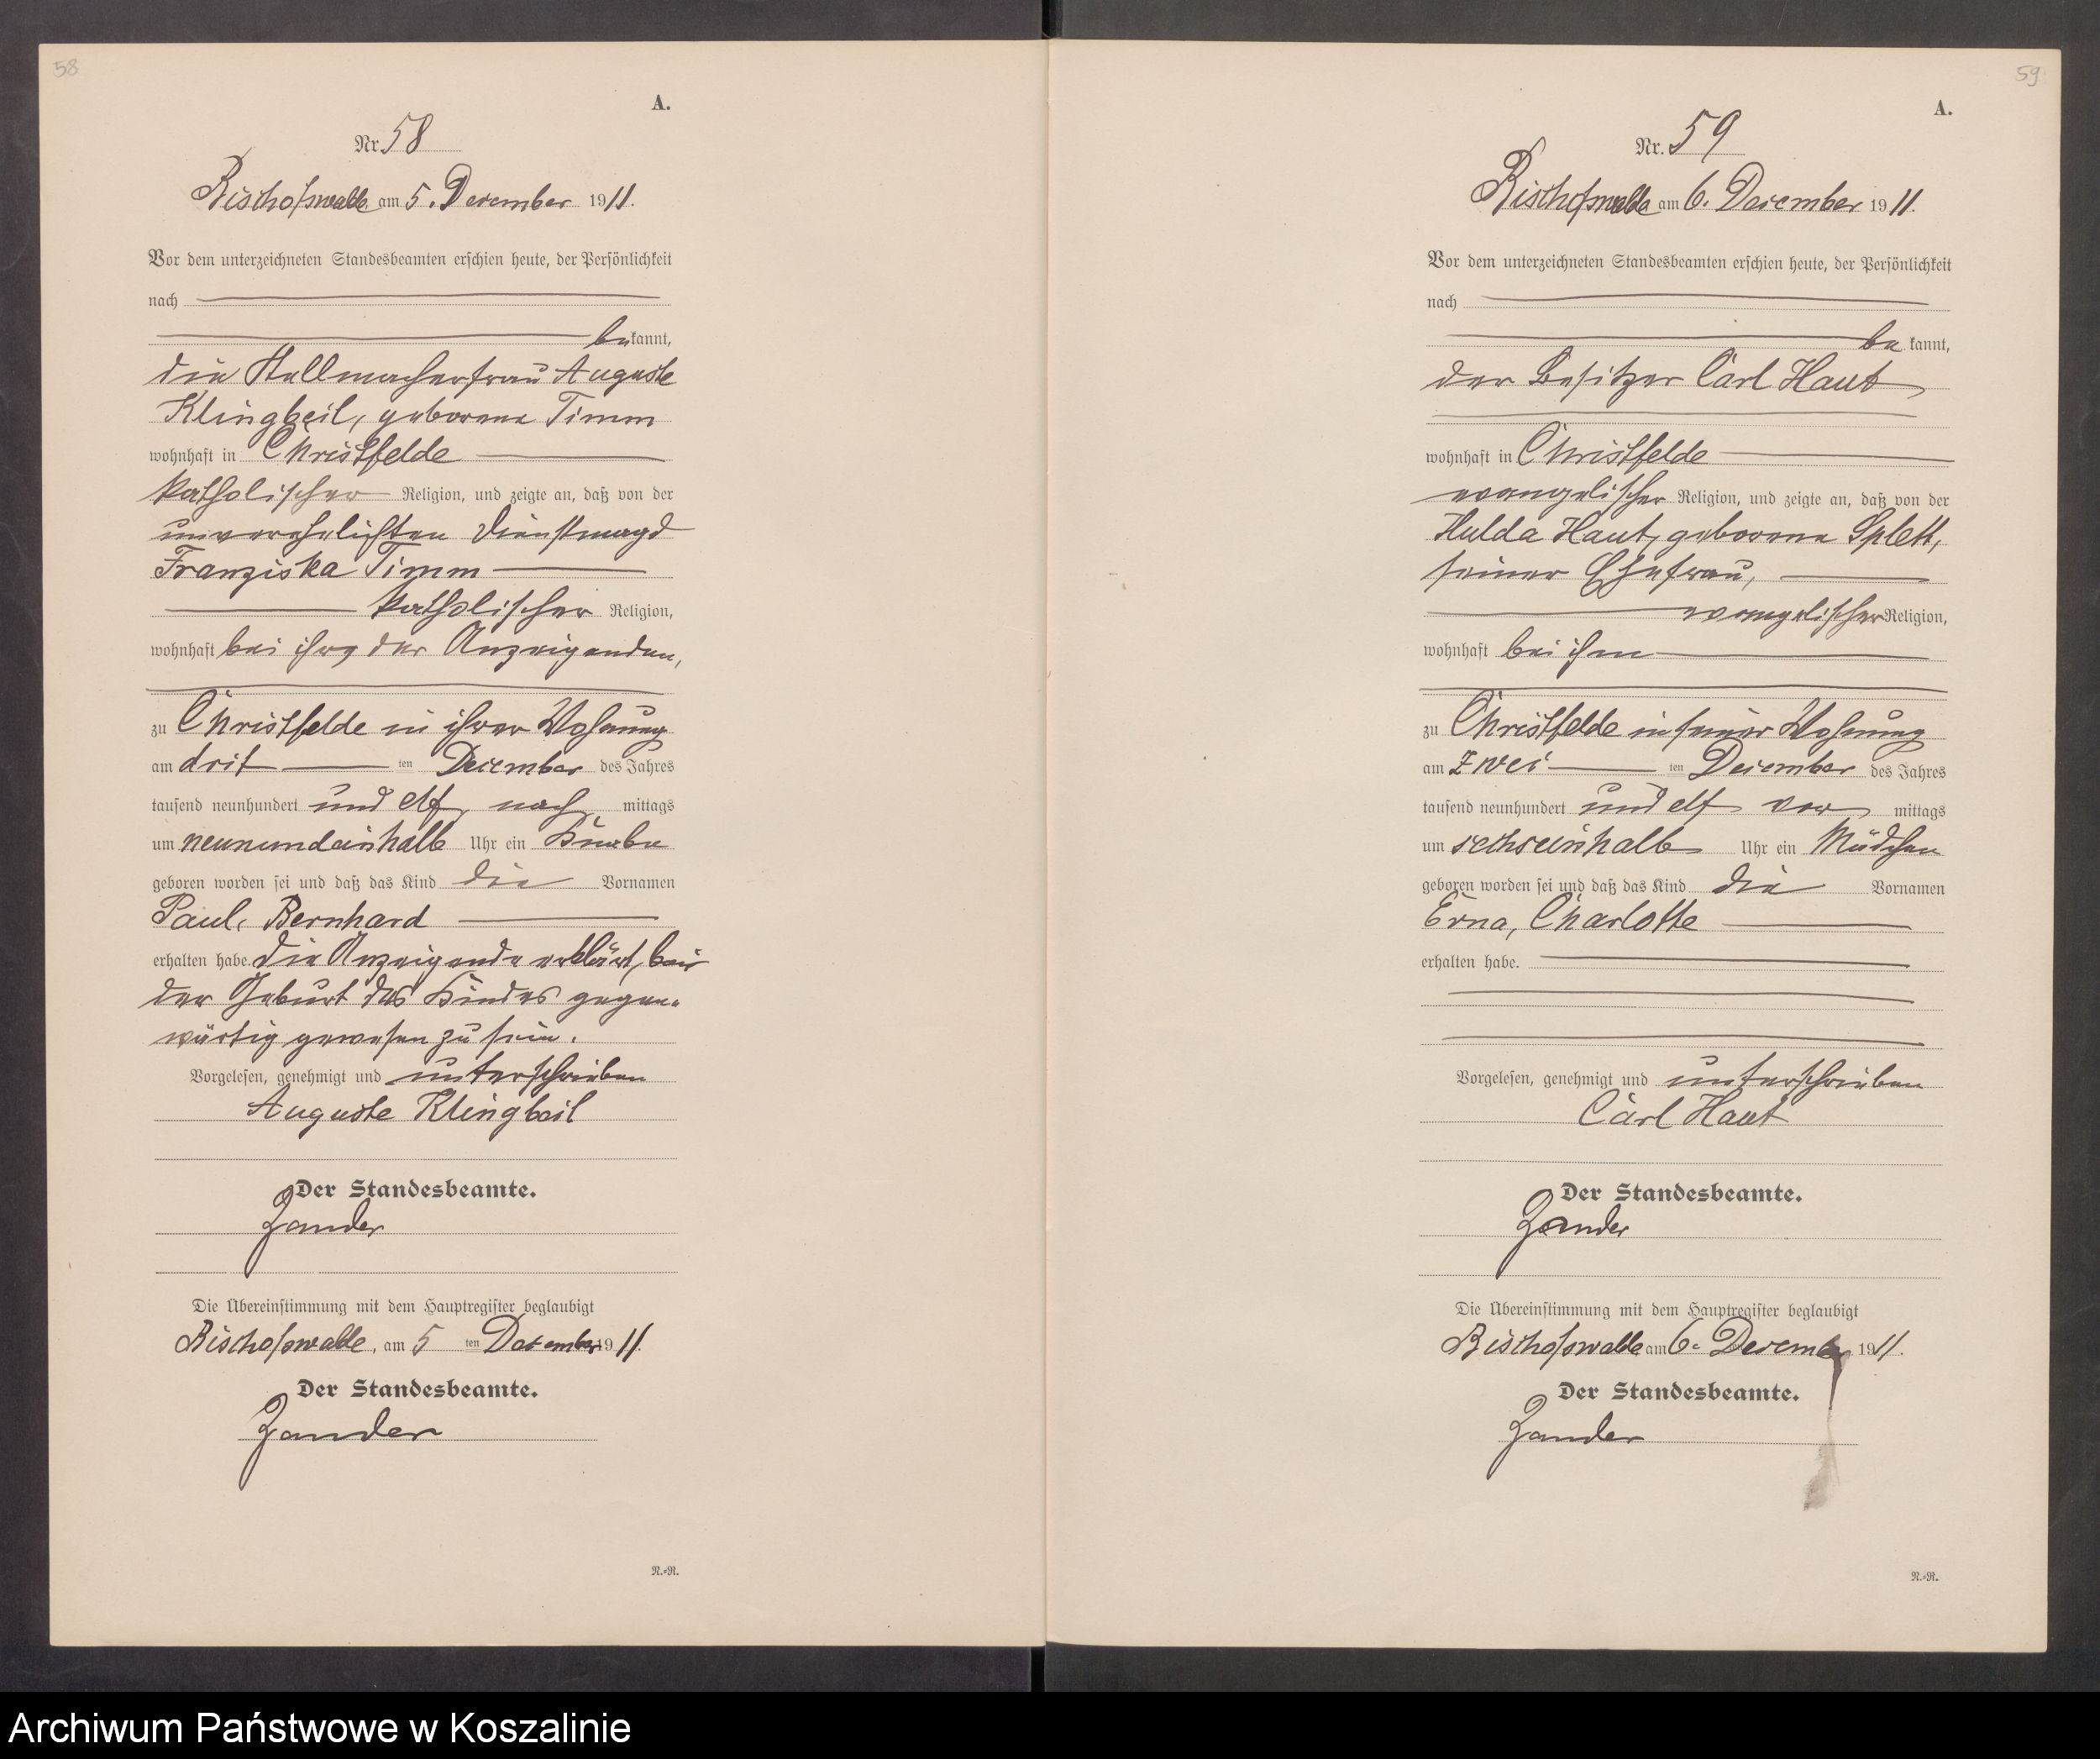 58
A.
Nr. 58
Bischofswalde am 5. Dezember 1911.
Vor dem unterzeichneten Standesbeamten erschien heute, der Persönlichkeit
nach
bekannt,
die Stellmacherfrau Auguste
Klingbeil, geborene Timm
wohnhaft in Christfelde
katholischer Religion, und zeigte an, daß von der
unverehelichten Dienstmagd
Franziska Timm
katholischer Religion,
wohnhaft bei ihr, der Anzeigenden,
zu Christfelde in ihrer Wohnung
am drit ten Dezember des Jahres
tausend neunhundert und elf, nach mittags
um neunundeinhalb Uhr ein Knabe
geboren worden sei und daß das Kind die Vornamen
Paul, Bernhard
erhalten habe. Die Anzeigende erklärt, bei
der Geburt des Kindes gegen-
wärtig gewesen zu sein.
Vorgelesen, genehmigt und unterschrieben
Auguste Klingbeil
Der Standesbeamte.
Zander
Die Übereinstimmung mit dem Hauptregister beglaubigt
Bischofswalde, am 5 ten Dezember 1911.
Der Standesbeamte.
Zander
N.=R.
59
A.
Nr. 59
Bischofswalde am 6. Dezember 1911.
Vor dem unterzeichneten Standesbeamten erschien heute, der Persönlichkeit
nach
be kannt,
der Besitzer Carl Haut
wohnhaft in Christfelde
evangelischer Religion, und zeigte an, daß von der
Hulda Haut, geborene Splett,
seiner Ehefrau,
evangelischer Religion,
wohnhaft bei ihm
zu Christfelde in seiner Wohnung
am zwei ten Dezember des Jahres
tausend neunhundert und elf vor mittags
um sechseinhalb Uhr ein Mädchen
geboren worden sei und daß das Kind die Vornamen
Erna, Charlotte
erhalten habe.
Vorgelesen, genehmigt und unterschrieben
Carl Haut
Der Standesbeamte.
Zander
Die Übereinstimmung mit dem Hauptregister beglaubigt
Bischofswalde am 6. Dezember 1911.
Der Standesbeamte.
Zander
N.=R.
Archiwum Państwowe w Koszalinie